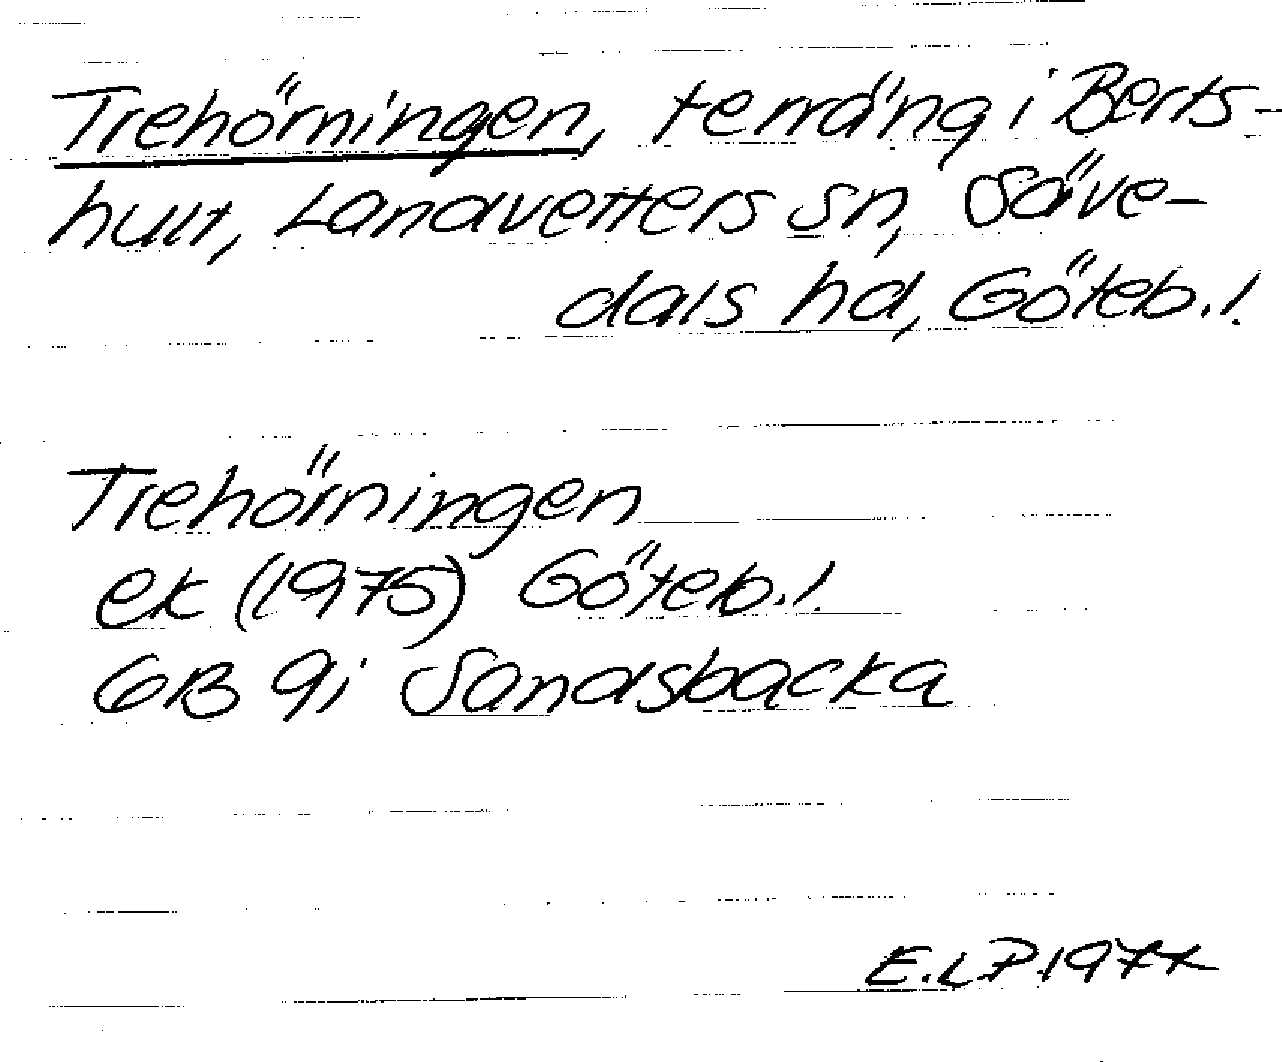 Trehörningen, terräng i Berts-
hult, Landvetters sn, Säve-
dals hd, Göteb.l.
Trehörningen
ek (1975) Göteb.l.
6B 9i Sandsbacka
E.LP.1977